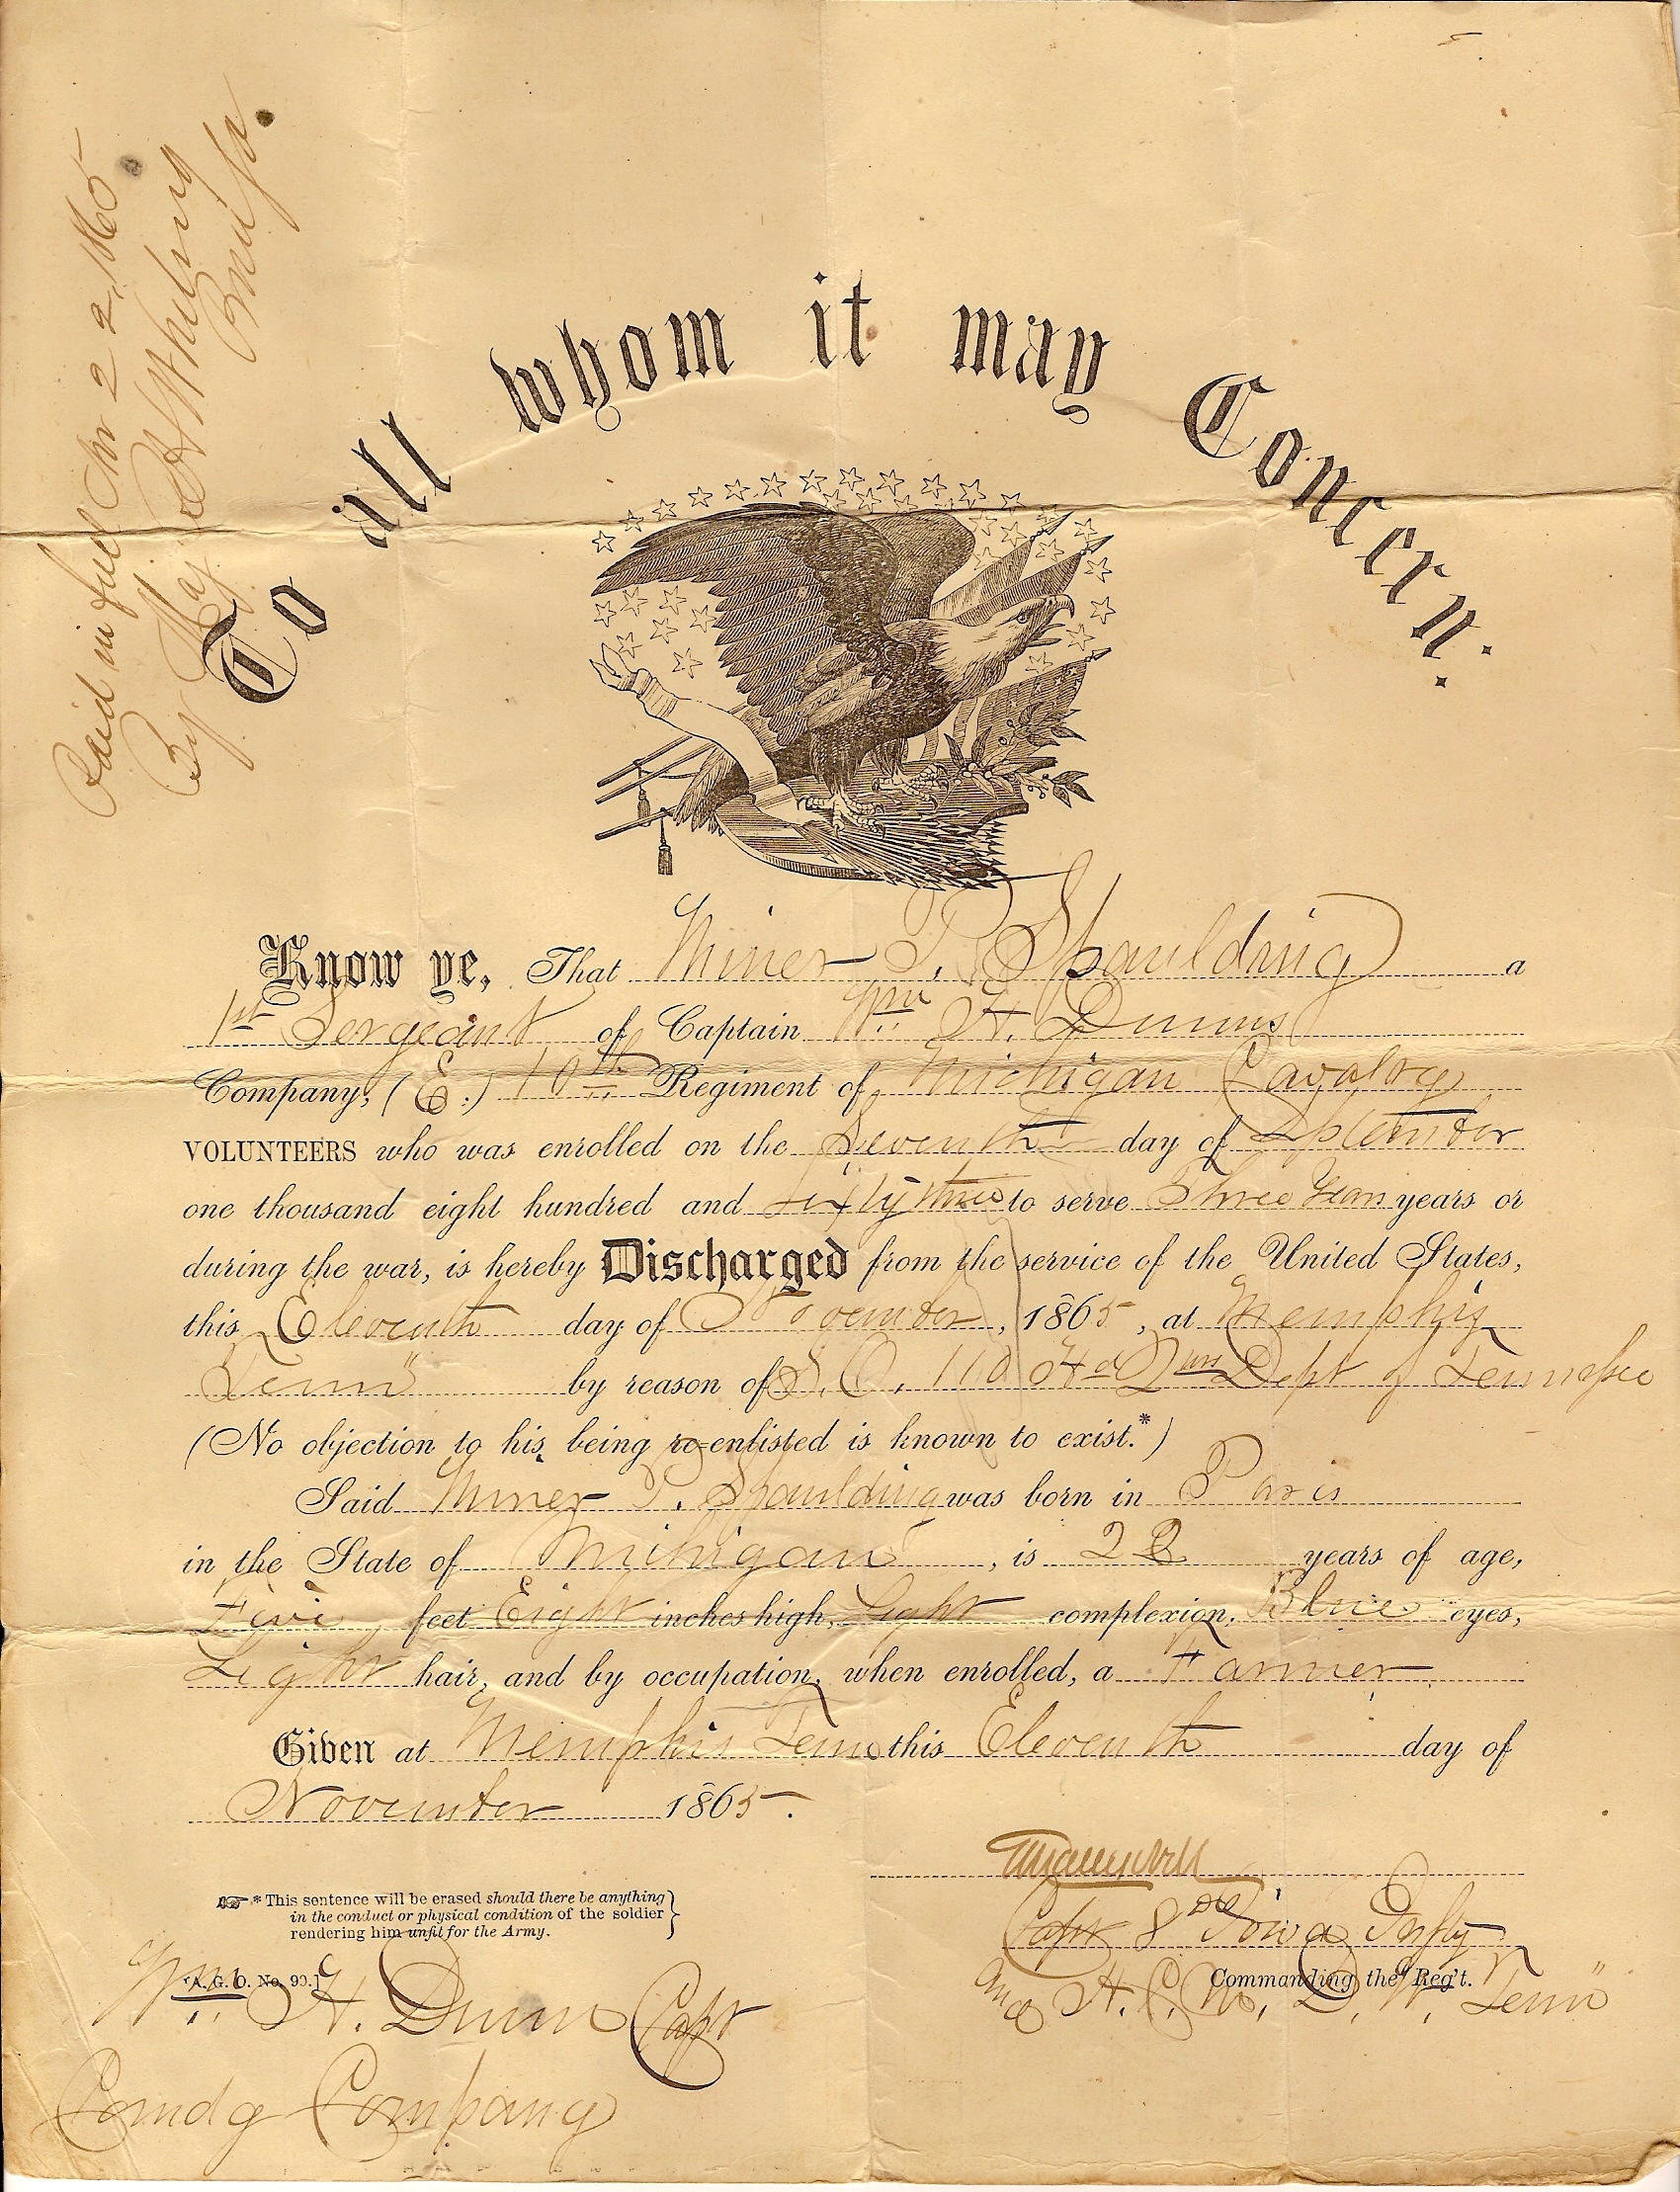 Paid in full Nov 22, 1865
By Maj
To all whom it may Concern.
Know ye, That Miner P. Spaulding a
1st Sergeant of Captain Wm H. Dunns
Company, (E.) 10th Regiment of Michigan Cavalry
VOLUNTEERS who was enrolled on the Seventh day of September
one thousand eight hundred and sixty three to serve Three Years years or
during the war, is hereby Discharged from the service of the United States,
this Eleventh day of November, 1865, at Memphis
Tenn by reason of S. O. 110 Hd Qurs Dept of Tennessee
(No objection to his being re-enlisted is known to exist.*)
Said Miner P. Spaulding was born in Paris
in the State of Michigan, is 22 years of age,
Five feet Eight inches high, Light complexion, Blue eyes,
Light hair, and by occupation, when enrolled, a Farmer
Given at Memphis Tenn this Eleventh day of
November 1865.
* This sentence will be erased should there be anything
in the conduct or physical condition of the soldier
rendering him unfit for the Army.
[A. G. O. No. 99.]
Wm H. Dunn Capt
Comdg Company
Capt 8th Iowa Infty
Commanding the Reg't.
A. C. M. D. W. Tenn